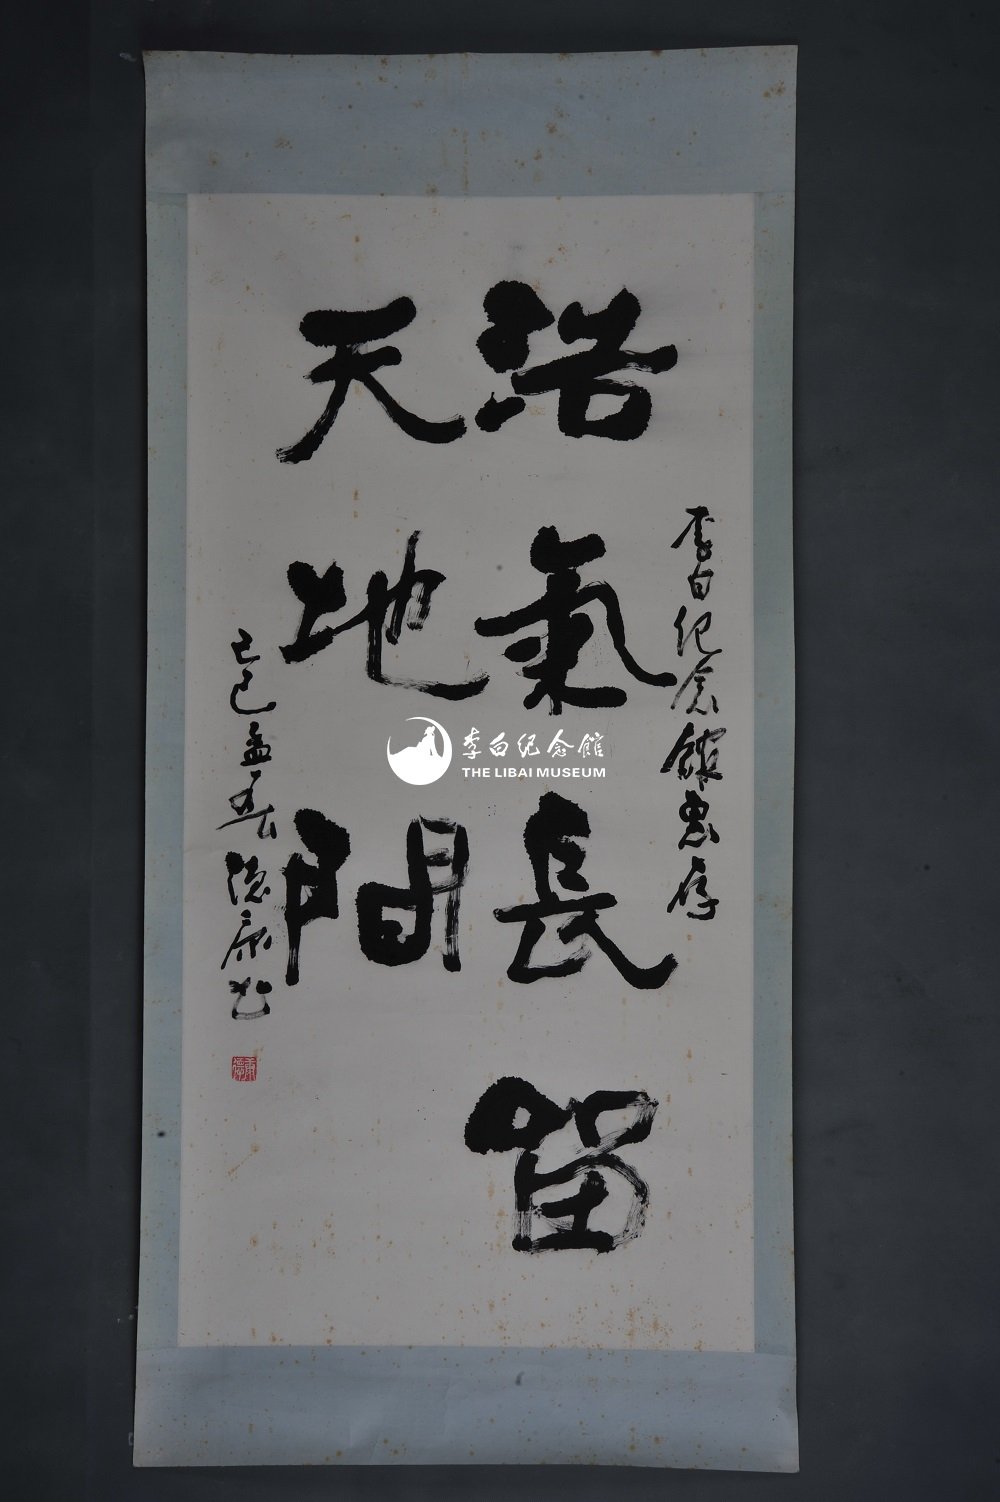 李白纪念館惠存
浩氣長留
天地間
己巳孟春德康书
李白纪念館
THE LIBAI MUSEUM